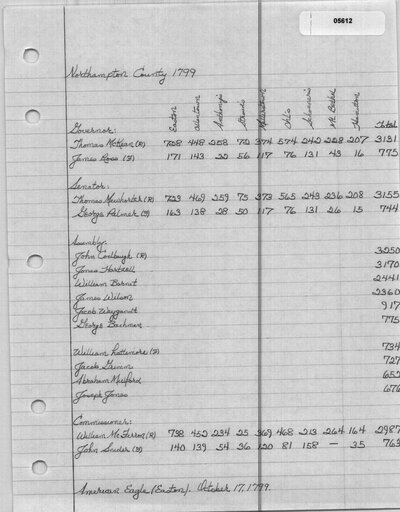 05612
Northampton County 1799
Easton Allentown Hamilton
Governor: Total
Thomas McKean (R) 708 448 258 72 374 574 242 258 207 3131
James Ross (F) 171 143 22 56 117 76 131 43 16 775
Senator:
Thomas (R) 723 469 259 75 373 565 243 236 208 3155
George Palmer (F) 163 138 28 50 117 76 131 26 15 744
Assembly:
John Coolbaugh (R) 3250
Jonas Hartzell 3170
William Barnet 2441
James Wilson 2360
Jacob Weygandt 917
George Bachman 775
William Lattimore (F) 734
Jacob 727
Abraham Mulford 652
Joseph Jones 676
Commissioner:
William McFerren (R) 738 452 234 25 369 468 213 264 164 2987
John Snider (F) 140 139 54 36 120 81 158 — 35 763
American Eagle (Easton). October 17, 1799.